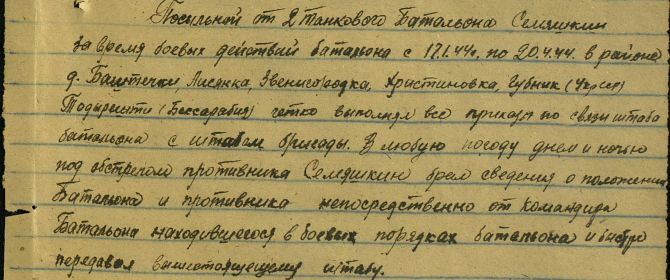 Посыльной от 2 танкового Батальона Семяшкин
за время боевых действий батальона с 17.1.44г. по 20.4.44. в районе
д. Баштечки, Лисянка, Звенигородка, Христиновка, Губник (Укр
(Бессарабия) четко выполнял все приказы по связи штаба
батальона с штабом бригады. В любую погоду днем и ночью
под обстрелом противника Семяшкин брал сведения о положении
Батальона и противника непосредственно от командира
Батальона находившегося в боевых порядках батальона и быстро
передавал вышестоящему штабу.